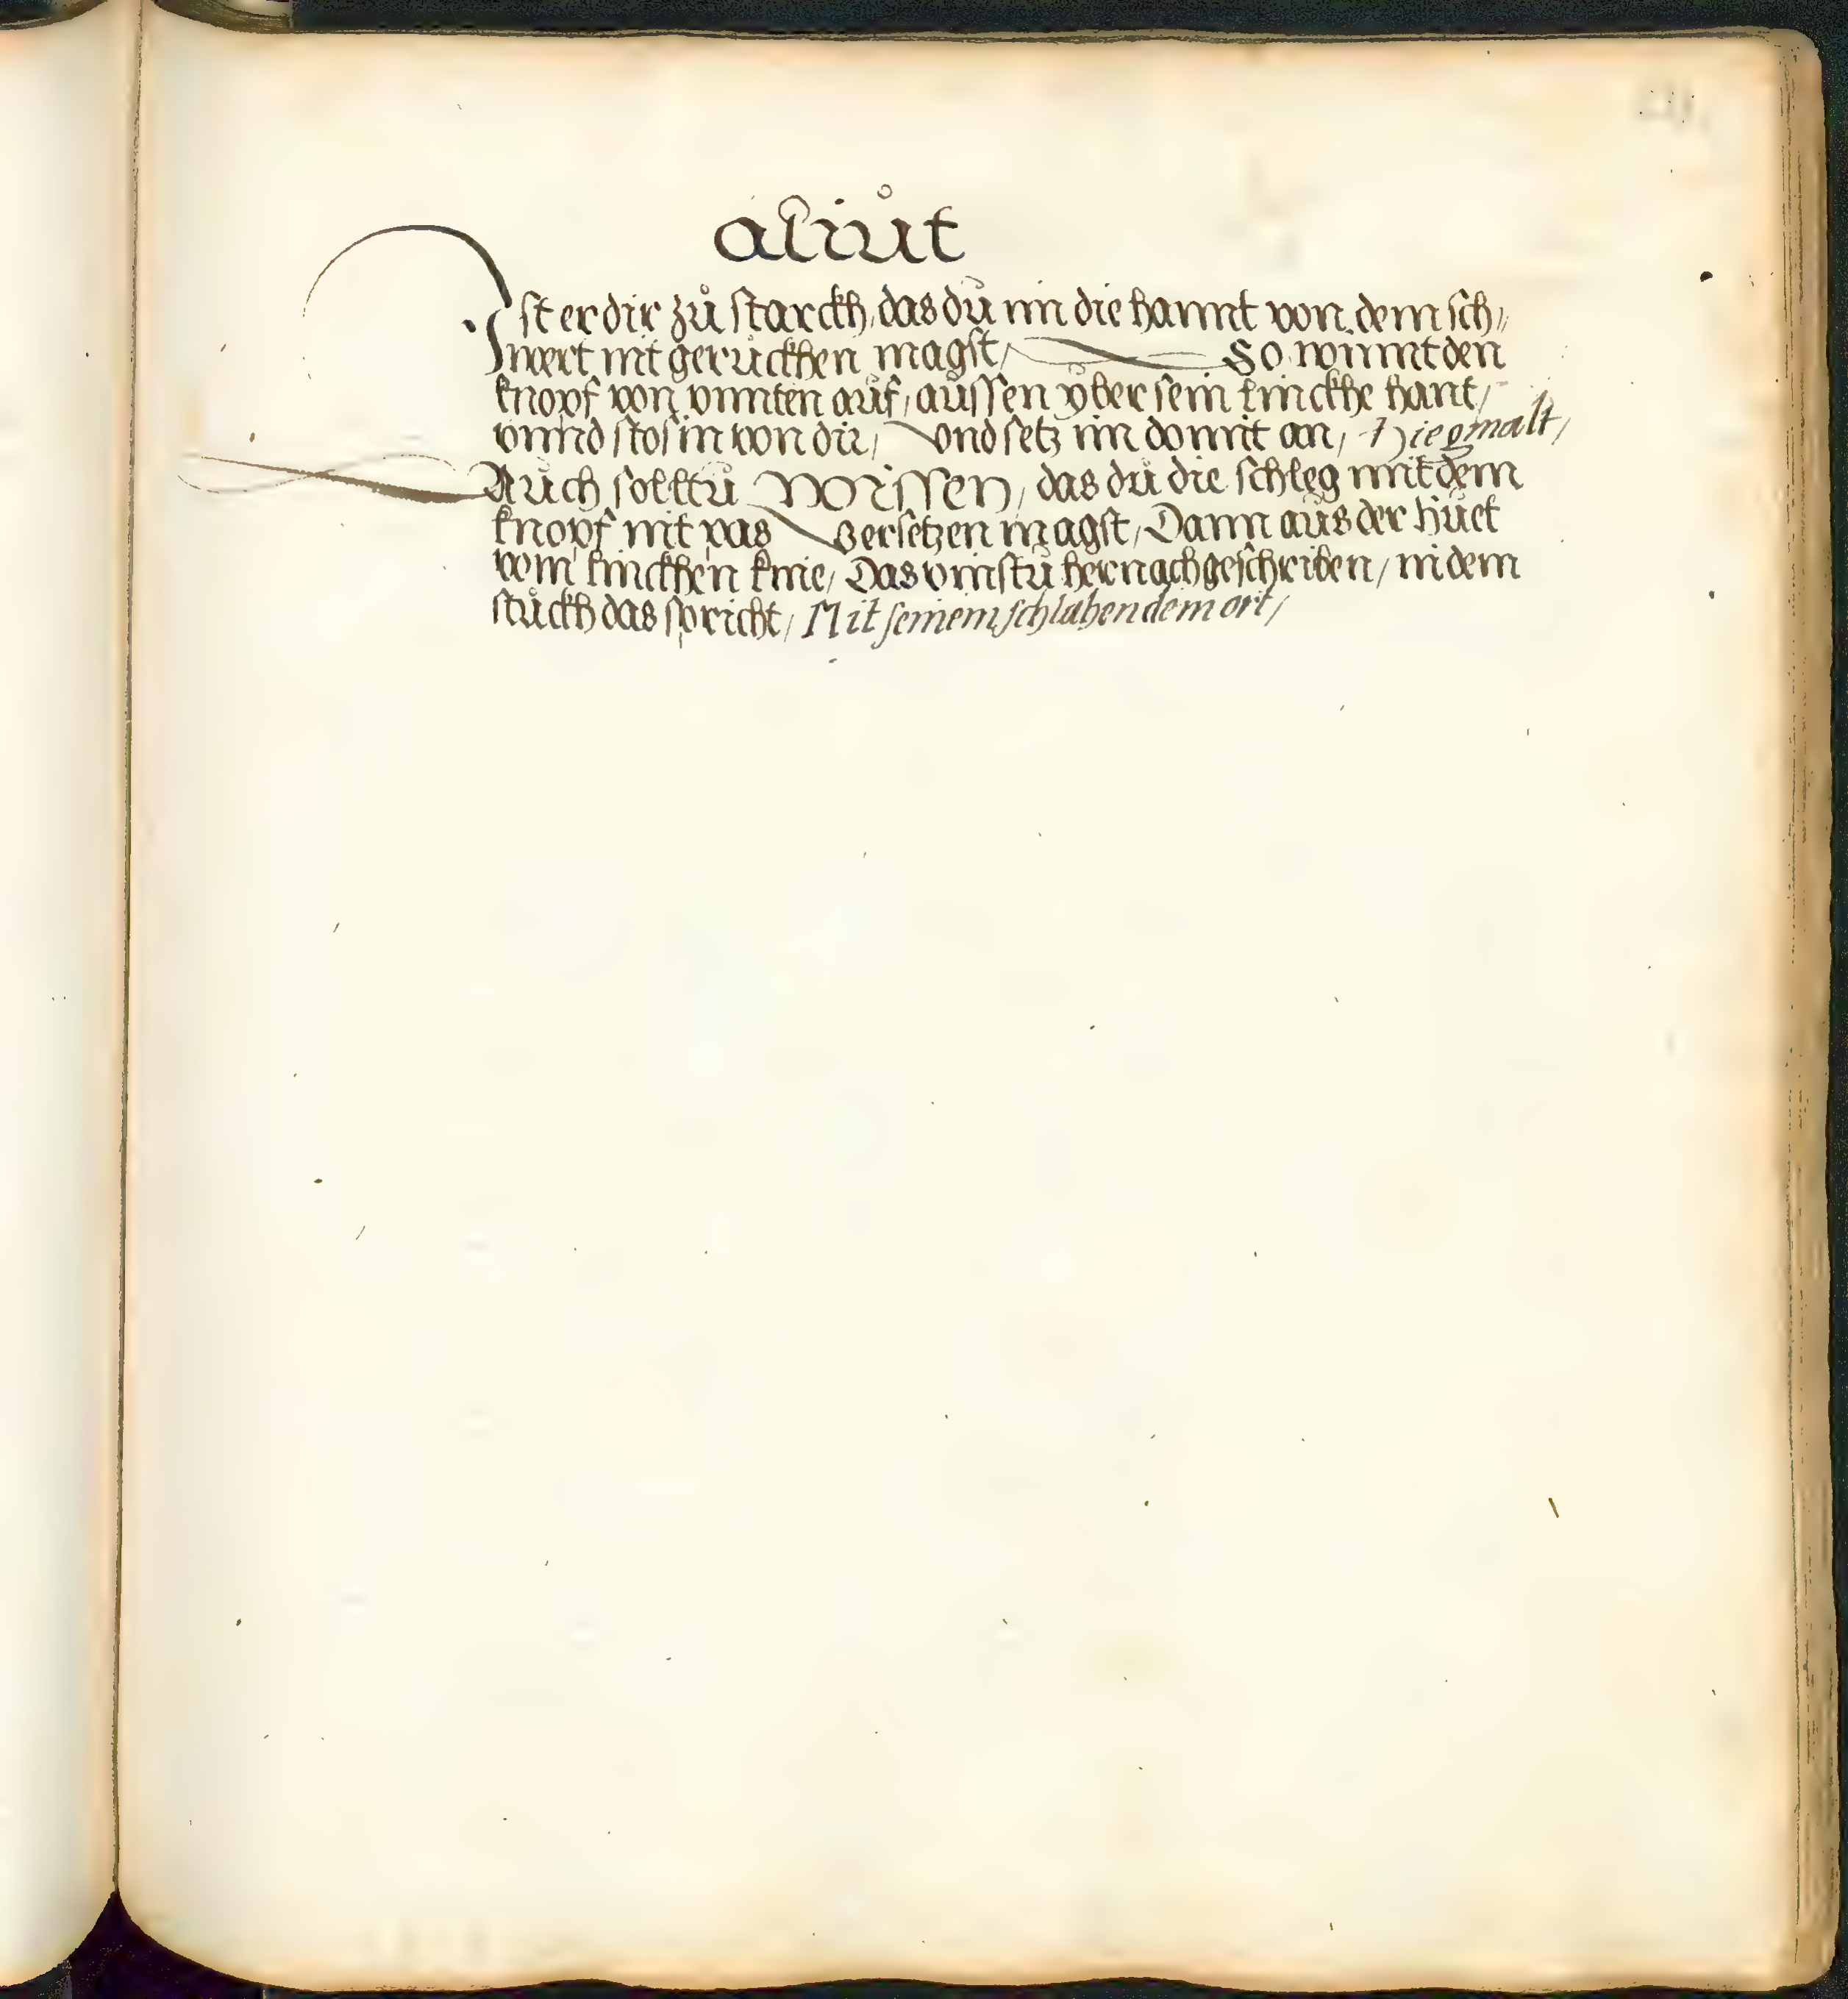 aliůt
Ist er dir zů starckh, das dů im die hannt von dem sch„
wert nit gerückhen magst, So winnt den
knopf von vnnten aůf, aůssen vber sein linckhe hant,
vnnd stos in von dir, vnd setz im domit an, Hie gmalt,
Aůch solltů wissen, das dů die schleg mit dem
knopf nit pas versetzen magst, Dann aůs der hůet
vom linckhen knie, Das vinstů hernach geschriben, in dem
stůckh das spricht, Mit seinem schlahendem ort,